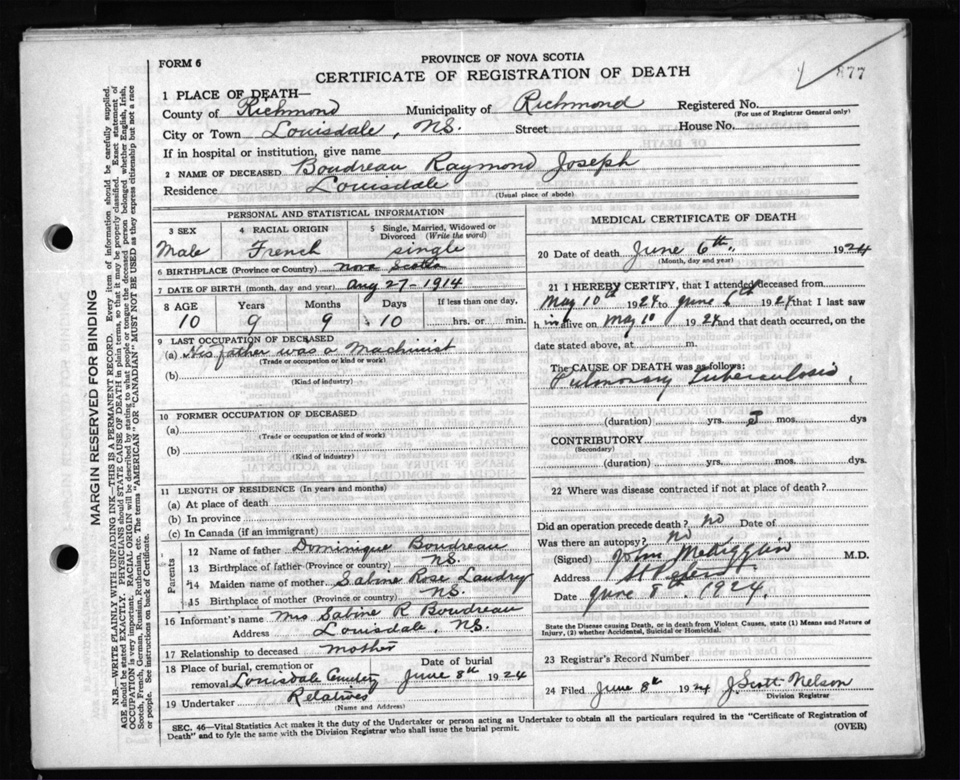 FORM 6
PROVINCE OF NOVA SCOTIA
CERTIFICATE OF REGISTRATION OF DEATH
877
1 PLACE OF DEATH—
County of Richmond Municipality of Richmond Registered No.
(For use of Registrar General only)
City or Town Louisdale, N.S. Street House No.
If in hospital or institution, give name
2 NAME OF DECEASED Boudreau Raymond Joseph
Residence Louisdale
(Usual place of abode)
PERSONAL AND STATISTICAL INFORMATION
3 SEX 4 RACIAL ORIGIN 5 Single, Married, Widowed or Divorced (Write the word)
Male French single
6 BIRTHPLACE (Province or Country) Nova Scotia
7 DATE OF BIRTH (month, day and year) Aug 27-1914
8 AGE Years Months Days If less than one day,
10 9 9 10 hrs. or min.
9 LAST OCCUPATION OF DECEASED
(a) His father was a Machinist
(Trade or occupation or kind or work)
(b)
(Kind of industry)
10 FORMER OCCUPATION OF DECEASED
(a)
(Trade or occupation or kind of work)
(b)
(Kind of industry)
11 LENGTH OF RESIDENCE (In years and months)
(a) At place of death
(b) In province
(c) In Canada (if an immigrant)
Parents
12 Name of father Dominique Boudreau
13 Birthplace of father (Province or country) N.S.
14 Maiden name of mother Sabine Rose Landry
15 Birthplace of mother (Province or country) N.S.
16 Informant's name Mrs Sabine R Boudreau
Address Louisdale, N.S.
17 Relationship to deceased mother
18 Place of burial, cremation or removal Louisdale Cemetery Date of burial June 8th 1924
19 Undertaker Relatives
(Name and Address)
MEDICAL CERTIFICATE OF DEATH
20 Date of death June 6th, 1924
(Month, day and year)
21 I HEREBY CERTIFY, that I attended deceased from
May 10th 1924 to June 6th 1924 that I last saw
h im alive on May 10 1924 and that death occurred, on the
date stated above, at m.
The CAUSE OF DEATH was as follows:
Pulmonary Tuberculosis
(duration) yrs. mos. dys
CONTRIBUTORY
(Secondary)
(duration) yrs. mos. dys.
22 Where was disease contracted if not at place of death?
Did an operation precede death? no Date of
Was there an autopsy? no
(Signed) John M.D.
Address
Date June 8th, 1924.
State the Disease causing Death, or in death from Violent Causes, state (1) Means and Nature of
Injury, (2) whether Accidental, Suicidal or Homicidal.
23 Registrar's Record Number
24 Filed June 8th 1924 J. Scott Nelson
Division Registrar
SEC. 46—Vital Statistics Act makes it the duty of the Undertaker or person acting as Undertaker to obtain all the particulars required in the "Certificate of Registration of
Death" and to fyle the same with the Division Registrar who shall issue the burial permit.
(OVER)
MARGIN RESERVED FOR BINDING
N.B.—WRITE PLAINLY WITH UNFADING INK—THIS IS A PERMANENT RECORD. Every item of information should be carefully supplied.
AGE should be stated EXACTLY. PHYSICIANS should STATE CAUSE OF DEATH in plain terms, so that it may be properly classified. Exact statement of
OCCUPATION is very important. RACIAL ORIGIN will be described by stating to what people or tongue the deceased person belonged whether English, Irish,
Scotch, French, German, Russian, Ruthenian, etc. The terms "AMERICAN" OR "CANADIAN" MUST NOT BE USED as they express citizenship but not a race
or people. See instructions on back of Certificate.